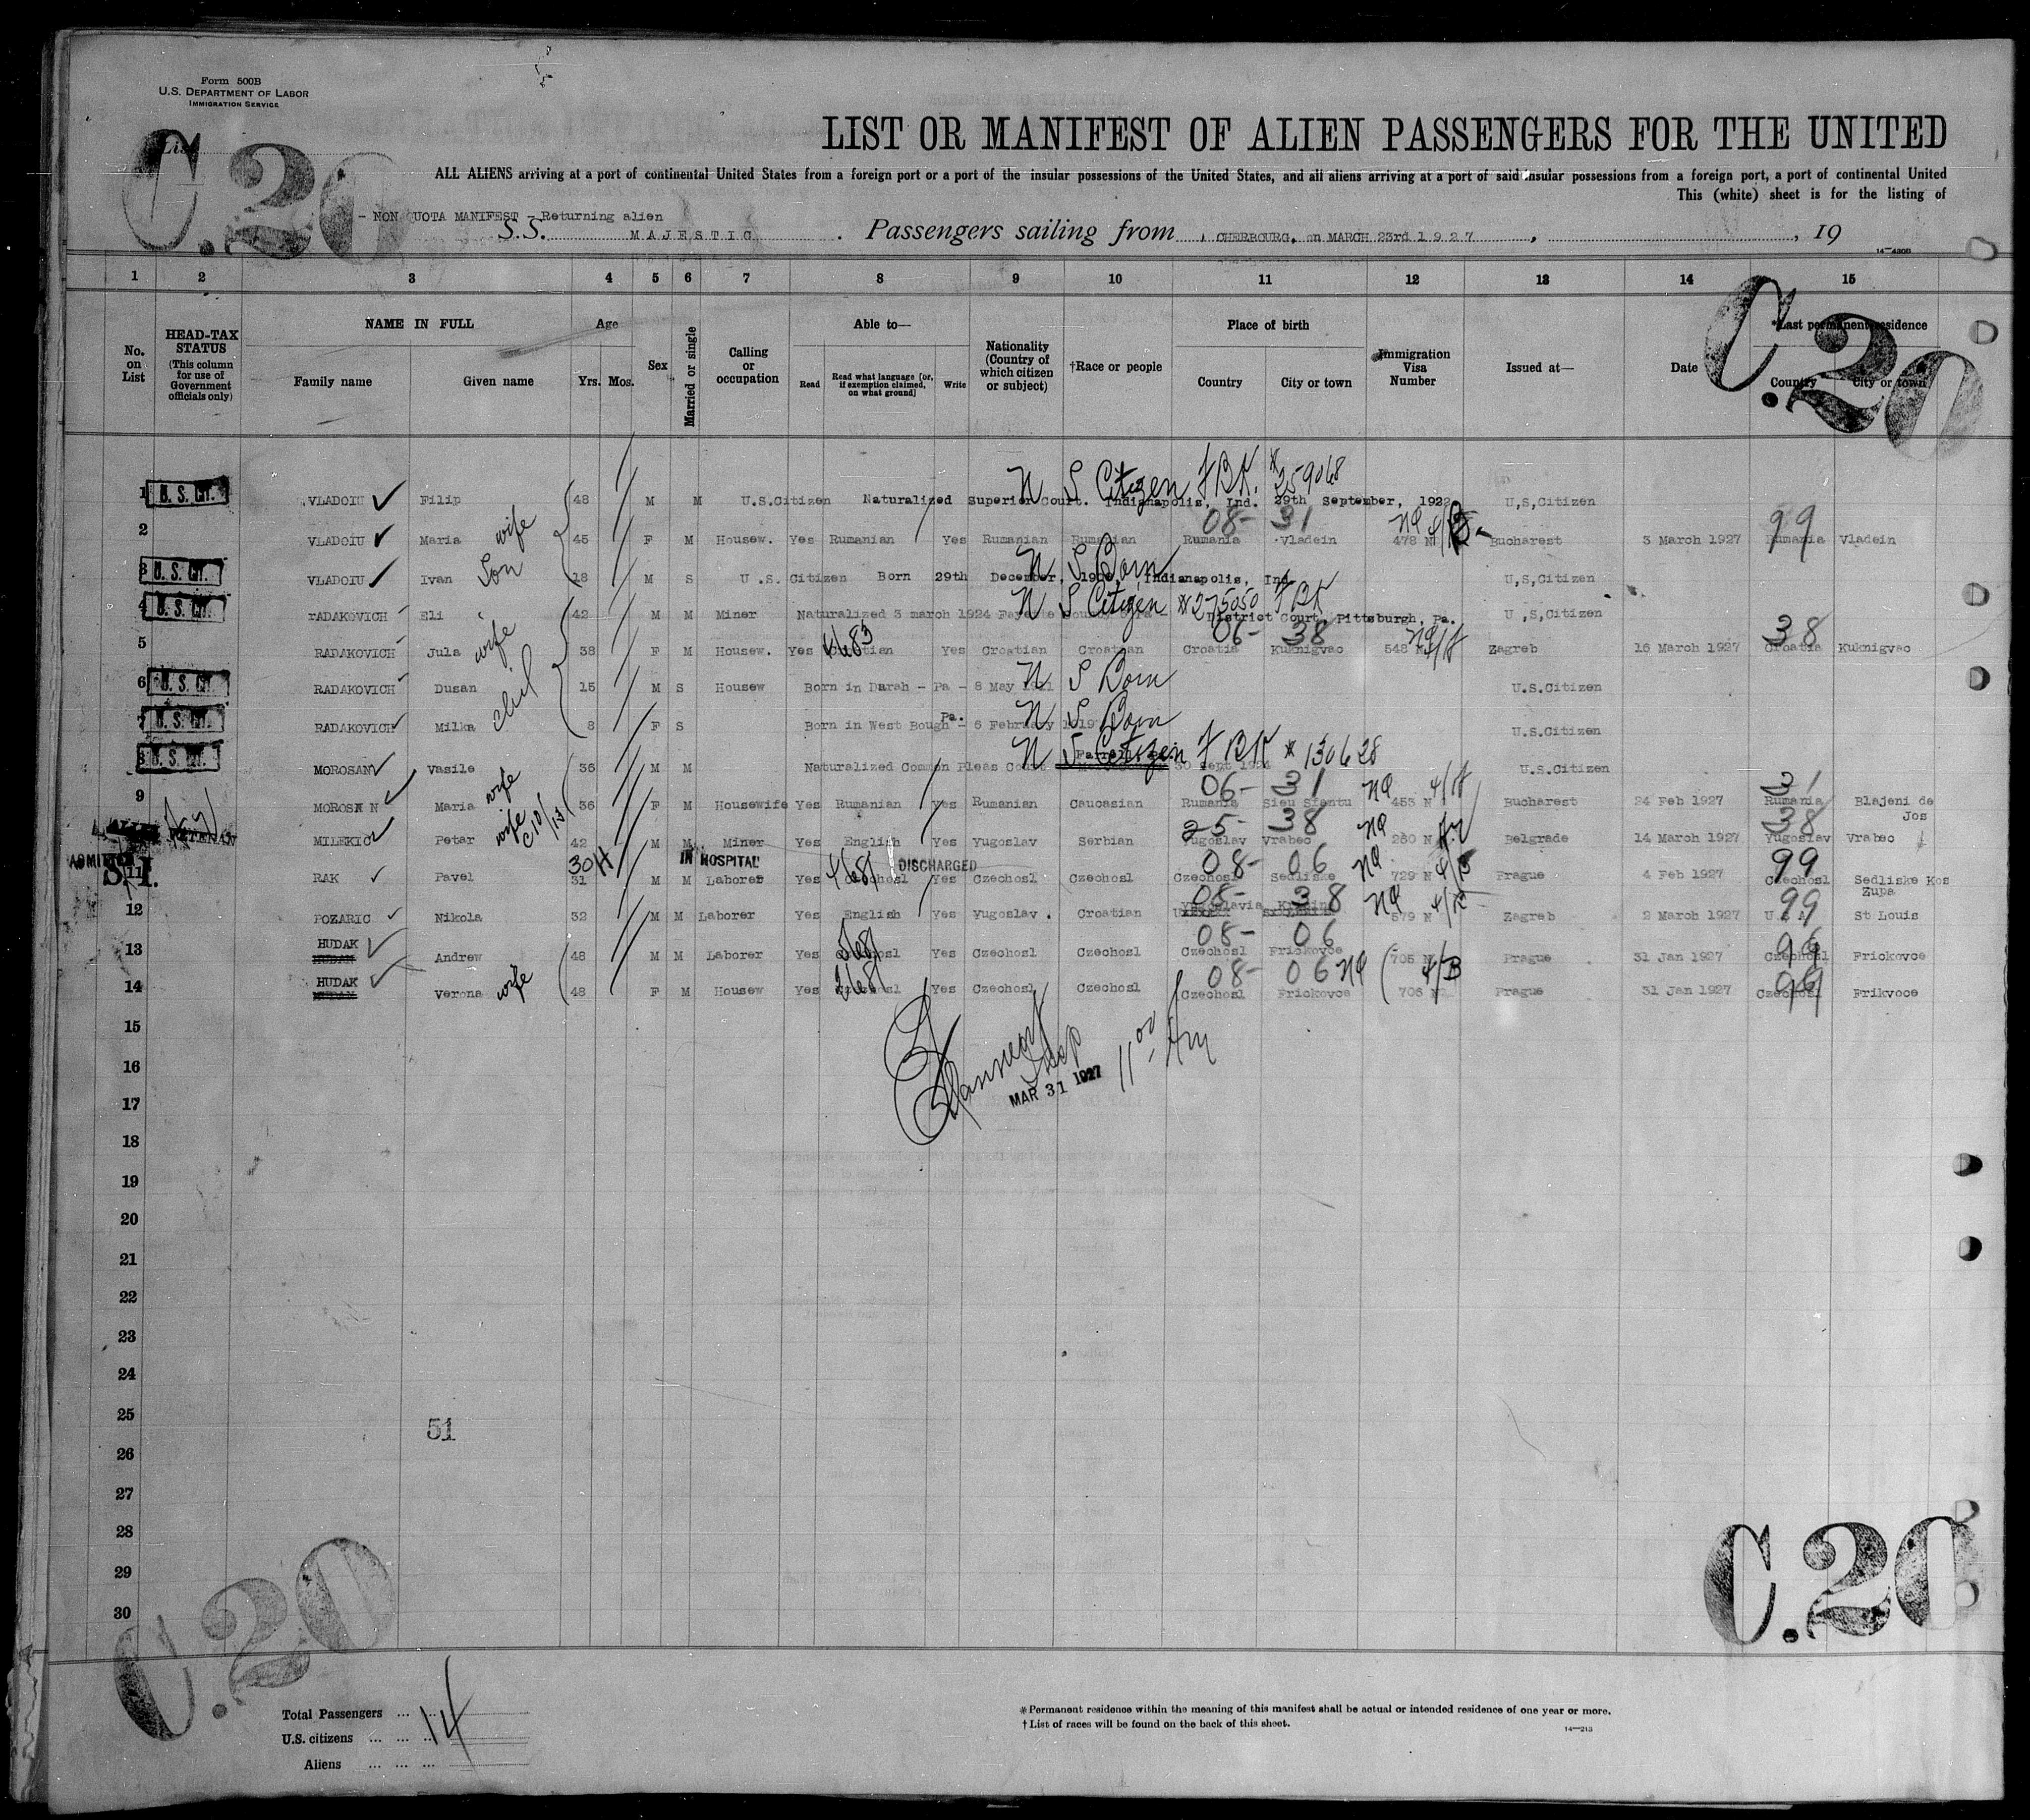 Form 500B
U.S. DEPARTMENT OF LABOR
IMMIGRATION SERVICE
C.20
List
LIST OR MANIFEST OF ALIEN PASSENGERS FOR THE UNITED
ALL ALIENS arriving at a port of continental United States from a foreign port or a port of the insular possessions of the United States, and all aliens arriving at a port of said insular possessions from a foreign port, a port of continental United
This (white) sheet is for the listing of
- NON QUOTA MANIFEST - Returning alien
S.S. MAJESTIC. Passengers sailing from CHERBOURG, on MARCH 23rd 1927, , 19
14—430B
1 2 3 4 5 6 7 8 9 10 11 12 13 14 15
C.20
No. on List
HEAD-TAX STATUS (This column for use of Government officials only)
NAME IN FULL
Family name Given name
Age
Yrs. Mos.
Sex
Married or single
Calling or occupation
Able to—
Read Read what language [or, if exemption claimed, on what ground] Write
Nationality (Country of which citizen or subject)
†Race or people
Place of birth
Country City or town
Immigration Visa Number
Issued at—
Date
*Last permanent residence
Country City or town
N S Citizen F BK. *259068
1 U.S. CIT. VLADOIU Filip 48 M M U.S.Citizen Naturalized Superior Court. Indianapolis, Ind. 29th September, 1922 U,S,Citizen
08- 31 99
2 VLADOIU Maria wife 45 F M Housew. Yes Rumanian Yes Rumanian Rumanian Rumania Vladein 478 N Bucharest 3 March 1927 Rumania Vladein
N S Born
3 U.S. CIT. VLADOIU Ivan Son 18 M S U.S. Citizen Born 29th December, Indianapolis, Ind. U,S,Citizen
N S Citizen *275050 F BK
4 U.S. CIT. RADAKOVICH Eli 42 M M Miner Naturalized 3 march 1924 District Court, Pittsburgh, Pa. U,S,Citizen
06- 38 38
5 RADAKOVICH Jula wife 38 F M Housew. Yes Yes Croatian Croatian Croatia Kuknigvac 548 Zagreb 16 March 1927 Croatia Kuknigvac
N S Born
6 U.S. CIT. RADAKOVICH Dusan 15 M S Housew Born in Darah - Pa - 8 May U.S.Citizen
N S Born
7 U.S. CIT. RADAKOVICH Milka 8 F S Born in West Bough Pa. - 6 February U.S.Citizen
N S Citizen F BK *130628
8 U.S. CIT. MOROSAN Vasile 36 M M Naturalized Common Pleas Court 30 Sept U.S.Citizen
06- 31 31
9 MOROSAN Maria wife 36 F M Housewife Yes Rumanian Yes Rumanian Caucasian Rumania Sieu Sfantu 453 N Bucharest 24 Feb 1927 Rumania Blajeni de Jos
25- 38 38
MILEKIC Petar wife 42 M M Miner Yes English Yes Yugoslav Serbian Yugoslav Vrabec 260 N Belgrade 14 March 1927 Yugoslav Vrabec
ADMITTED S.I. 30H IN HOSPITAL DISCHARGED 08- 06 99
11 RAK Pavel 31 M M Laborer Yes Czechosl Yes Czechosl Czechosl Czechosl Sedliske 729 N Prague 4 Feb 1927 Czechosl Sedliske Kos Zupa
08- 38 99
12 POZARIC Nikola 32 M M Laborer Yes English Yes Yugoslav. Croatian Yugoslavia 579 N Zagreb 2 March 1927 U S A St Louis
08- 06
13 HUDAK Andrew 48 M M Laborer Yes Yes Czechosl Czechosl Czechosl Frickovce 705 N Prague 31 Jan 1927 Czechosl Frickovce
08- 06
14 HUDAK Verona wife 48 F M Housew Yes Yes Czechosl Czechosl Czechosl Frickovce 706 N Prague 31 Jan 1927 Czechosl Frikvoce
15
Insp
MAR 31 1927
11 00 AM
16
17
18
19
20
21
22
23
24
25
51
26
27
28
29
30
C.20
C.20
Total Passengers ... ... 14
U.S. citizens ... ... ...
Aliens ... ... ...
*Permanent residence within the meaning of this manifest shall be actual or intended residence of one year or more.
†List of races will be found on the back of this sheet.
14—213